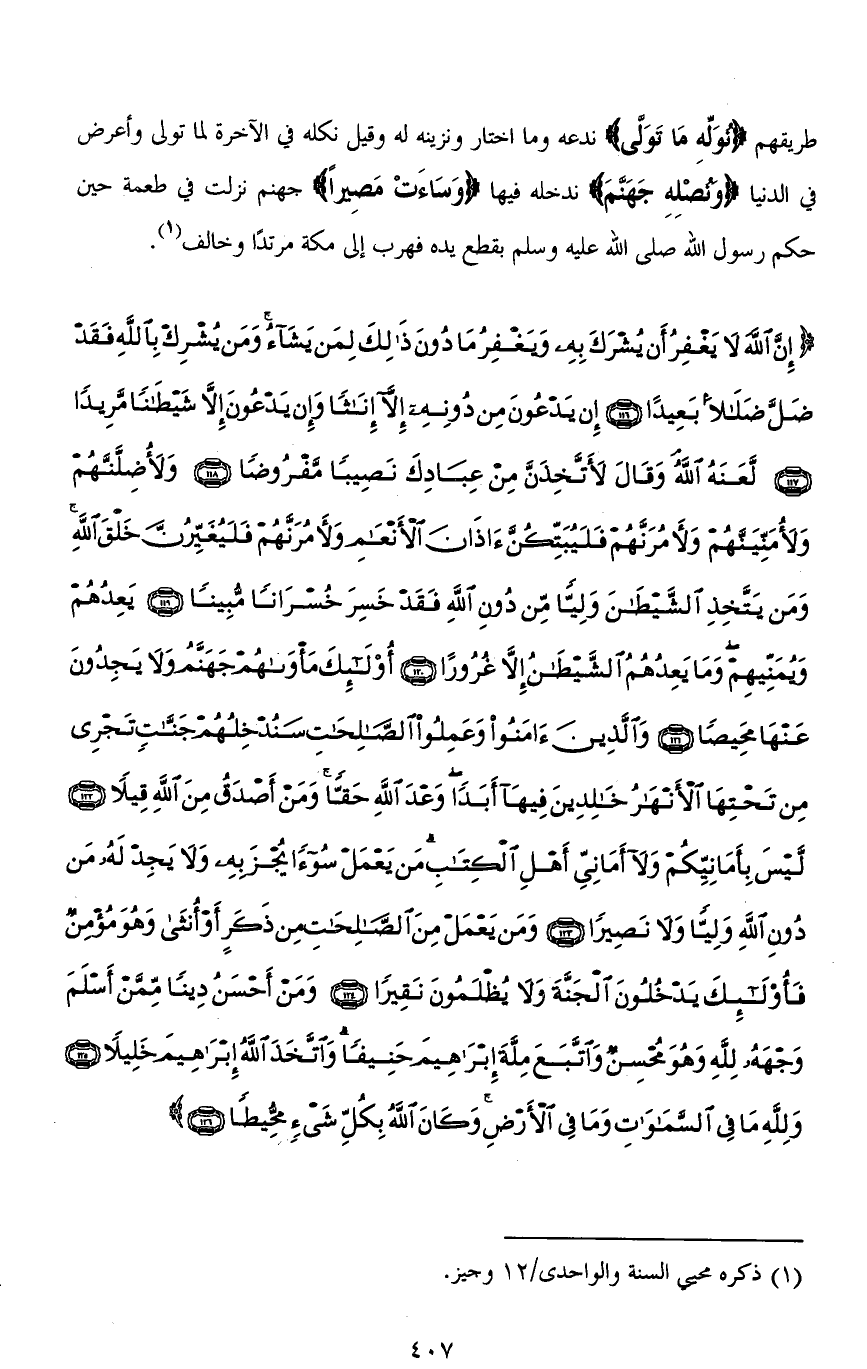 طريقهم ﴿نُوَلِّهِ مَا تَوَلَّى﴾ ندعه وما اختار ونزينه له وقيل نكله في الآخرة لما تولى وأعرض
في الدنيا ﴿وَنُصْلِهِ جَهَنَّمَ﴾ ندخله فيها ﴿وَسَاءَتْ مَصِيراً﴾ جهنم نزلت في طعمة حين
حكم رسول الله صلى الله عليه وسلم بقطع يده فهرب إلى مكة مرتدًا وخالف(١).
﴿إِنَّ ٱللَّهَ لَا يَغْفِرُ أَن يُشْرَكَ بِهِۦ وَيَغْفِرُ مَا دُونَ ذَٰلِكَ لِمَن يَشَآءُ ۚ وَمَن يُشْرِكْ بِٱللَّهِ فَقَدْ
ضَلَّ ضَلَٰلًۢا بَعِيدًا ١١٦ إِن يَدْعُونَ مِن دُونِهِۦٓ إِلَّآ إِنَٰثًا وَإِن يَدْعُونَ إِلَّا شَيْطَٰنًا مَّرِيدًا
١١٧ لَّعَنَهُ ٱللَّهُ ۘ وَقَالَ لَأَتَّخِذَنَّ مِنْ عِبَادِكَ نَصِيبًا مَّفْرُوضًا ١١٨ وَلَأُضِلَّنَّهُمْ
وَلَأُمَنِّيَنَّهُمْ وَلَـَٔامُرَنَّهُمْ فَلَيُبَتِّكُنَّ ءَاذَانَ ٱلْأَنْعَٰمِ وَلَـَٔامُرَنَّهُمْ فَلَيُغَيِّرُنَّ خَلْقَ ٱللَّهِ ۚ
وَمَن يَتَّخِذِ ٱلشَّيْطَٰنَ وَلِيًّا مِّن دُونِ ٱللَّهِ فَقَدْ خَسِرَ خُسْرَانًا مُّبِينًا ١١٩ يَعِدُهُمْ
وَيُمَنِّيهِمْ ۖ وَمَا يَعِدُهُمُ ٱلشَّيْطَٰنُ إِلَّا غُرُورًا ١٢٠ أُو۟لَٰٓئِكَ مَأْوَىٰهُمْ جَهَنَّمُ وَلَا يَجِدُونَ
عَنْهَا مَحِيصًا ١٢١ وَٱلَّذِينَ ءَامَنُوا۟ وَعَمِلُوا۟ ٱلصَّٰلِحَٰتِ سَنُدْخِلُهُمْ جَنَّٰتٍ تَجْرِى
مِن تَحْتِهَا ٱلْأَنْهَٰرُ خَٰلِدِينَ فِيهَآ أَبَدًا ۖ وَعْدَ ٱللَّهِ حَقًّا ۚ وَمَنْ أَصْدَقُ مِنَ ٱللَّهِ قِيلًا ١٢٢
لَّيْسَ بِأَمَانِيِّكُمْ وَلَآ أَمَانِىِّ أَهْلِ ٱلْكِتَٰبِ ۗ مَن يَعْمَلْ سُوٓءًا يُجْزَ بِهِۦ وَلَا يَجِدْ لَهُۥ مِن
دُونِ ٱللَّهِ وَلِيًّا وَلَا نَصِيرًا ١٢٣ وَمَن يَعْمَلْ مِنَ ٱلصَّٰلِحَٰتِ مِن ذَكَرٍ أَوْ أُنثَىٰ وَهُوَ مُؤْمِنٌ
فَأُو۟لَٰٓئِكَ يَدْخُلُونَ ٱلْجَنَّةَ وَلَا يُظْلَمُونَ نَقِيرًا ١٢٤ وَمَنْ أَحْسَنُ دِينًا مِّمَّنْ أَسْلَمَ
وَجْهَهُۥ لِلَّهِ وَهُوَ مُحْسِنٌ وَٱتَّبَعَ مِلَّةَ إِبْرَٰهِيمَ حَنِيفًا ۗ وَٱتَّخَذَ ٱللَّهُ إِبْرَٰهِيمَ خَلِيلًا ١٢٥
وَلِلَّهِ مَا فِى ٱلسَّمَٰوَٰتِ وَمَا فِى ٱلْأَرْضِ ۚ وَكَانَ ٱللَّهُ بِكُلِّ شَىْءٍ مُّحِيطًا ١٢٦﴾
(١) ذكره محيي السنة والواحدى/١٢ وجيز.
٤٠٧